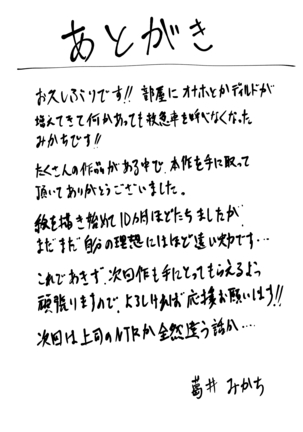 あとがき
お久しぶりです!! 部屋にオナホとかディルドが
増えてきて何かあっても救急車を呼べなくなった
みかちです!!
たくさんの作品がある中で、本作を手に取って
頂いてありがとうございました。
絵を描き始めて10カ月ほどたちましたが、
まだまだ自分の理想にはほど遠い力です…
これであきず、次回作も手にとってもらえるよう
頑張りますので、よろしければ応援お願いします!!
次回は上司のNTRか全然違う話か…
葛井 みかち